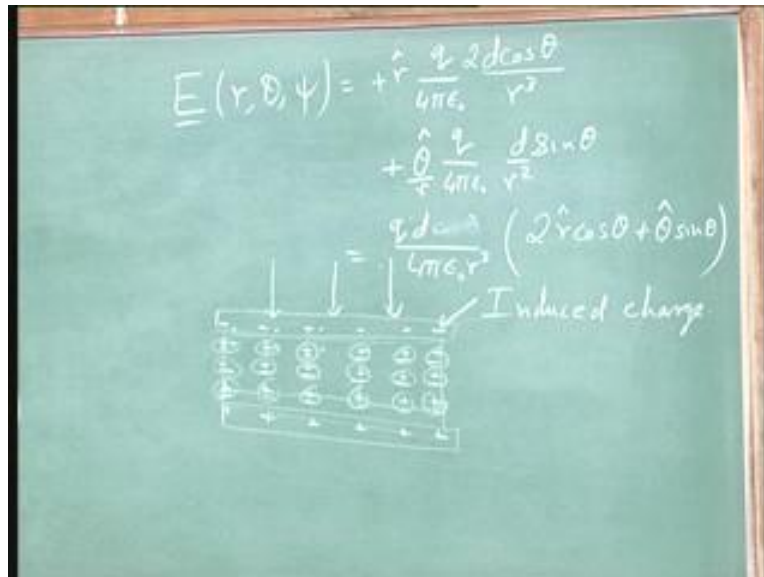 E (r, θ, ψ) = + r̂ q/4πε₀ 2dcosθ/r³
+ θ̂/r q/4πε₀ d sinθ/r²
= qd/4πε₀r³ (2r̂cosθ + θ̂sinθ)
Induced charge